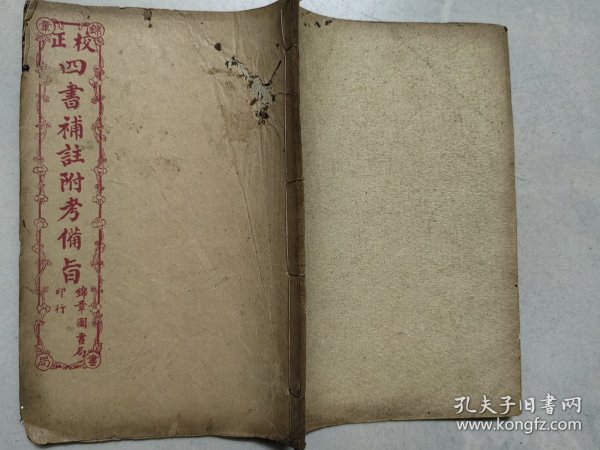 校正
四書補註附考備旨
錦章圖書局
印行
錦
章
書
局
孔夫子旧书网
www.kongfz.com